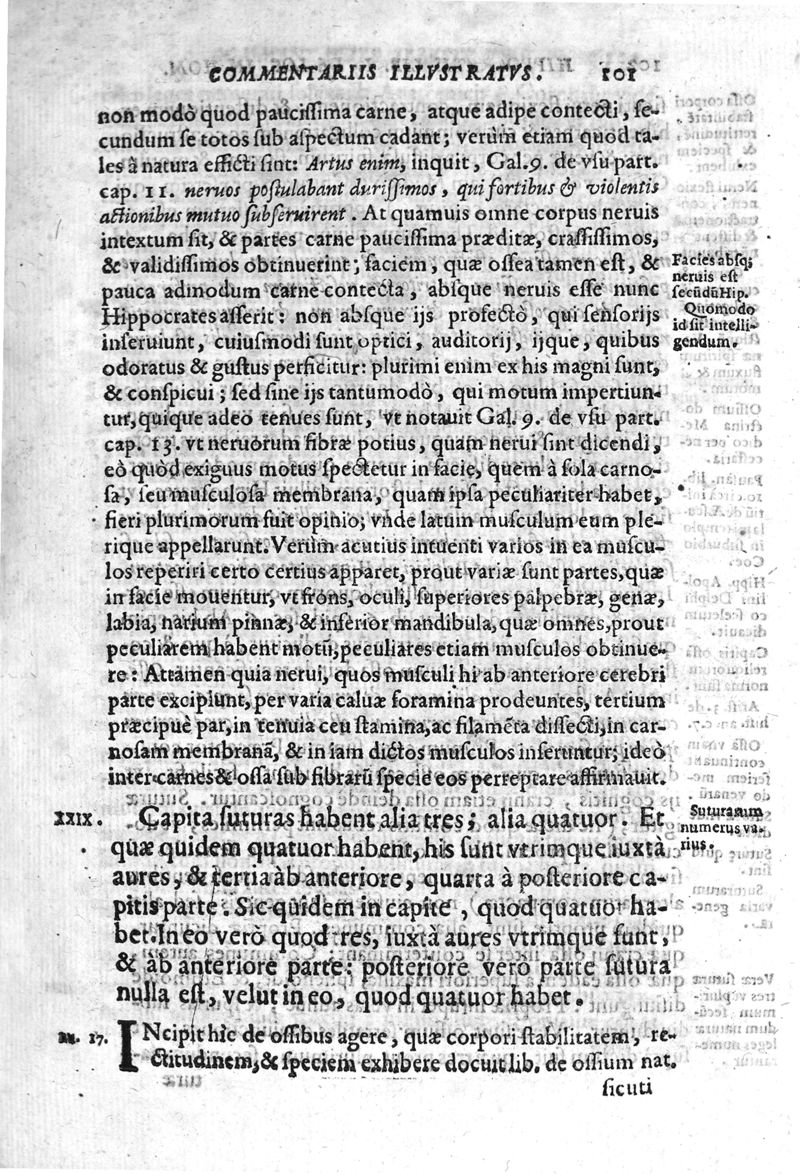 COMMENTARIIS ILLVSTRATVS. 101
non modò quod paucissima carne, atque adipe contecti, se-
cundum se totos sub aspectum cadant; verùm etiam quod ta-
les à natura efficti sint: Artus enim, inquit, Gal. 9. de vsu part.
cap. 11. neruos postulabant durissimos, qui fortibus & violentis
actionibus mutuo subseruirent. At quamuis omne corpus neruis
intextum sit, & partes carne paucissima præditæ, crassissimos,
& validissimos obtinuerint; faciem, quæ ossea tamen est, &
pauca admodum carne contecta, absque neruis esse nunc
Hippocrates asserit: non absque ijs profectò, qui sensorijs
inseruiunt, cuiusmodi sunt optici, auditorij, ijque, quibus
odoratus & gustus perficitur: plurimi enim ex his magni sunt,
& conspicui; sed sine ijs tantumodò, qui motum impertiun-
tur, quique adeo tenues sunt, vt notauit Gal. 9. de vsu part.
cap. 13. vt neruorum fibræ potius, quam nerui sint dicendi,
eò quòd exiguus motus spectetur in facie, quem à sola carno-
sa, seu musculosa membrana, quam ipsa peculiariter habet,
fieri plurimorum fuit opinio; vnde latum musculum eum ple-
rique appellarunt. Verùm acutius intuenti varios in ea muscu-
los reperiri certo certius apparet, prout variæ sunt partes, quæ
in facie mouentur, vt frons, oculi, superiores palpebræ, genæ,
labia, narium pinnæ, & inferior mandibula, quæ omnes, prout
peculiarem habent motũ, peculiares etiam musculos obtinue-
re: Attamen quia nerui, quos musculi hi ab anteriore cerebri
parte excipiunt, per varia caluæ foramina prodeuntes, tertium
præcipuè par, in tenuia ceu stamina, ac filamẽta dissecti, in car-
nosam membranã, & in iam dictos musculos inseruntur; ideò
inter carnes & ossa sub fibrarũ specie eos perreptare affirmauit.
Facies absq;
neruis est
secũdũ Hip.
Quomodo
id sit intelli-
gendum.
XXIX. Capita suturas habent alia tres; alia quatuor. Et
quæ quidem quatuor habent, his sunt vtrimque iuxtà
aures, & tertia àb anteriore, quarta à posteriore ca-
pitis parte. Sic quidem in capite, quod quatuor ha-
bet. In eo verò quod tres, iuxtà aures vtrimque sunt,
& àb anteriore parte: posteriore verò parte sutura
nulla est, velut in eo, quod quatuor habet.
Suturarum
numerus va-
rius.
17. INcipit hic de ossibus agere, quæ corpori stabilitatem, re-
ctitudinem, & speciem exhibere docuit lib. de ossium nat.
sicuti